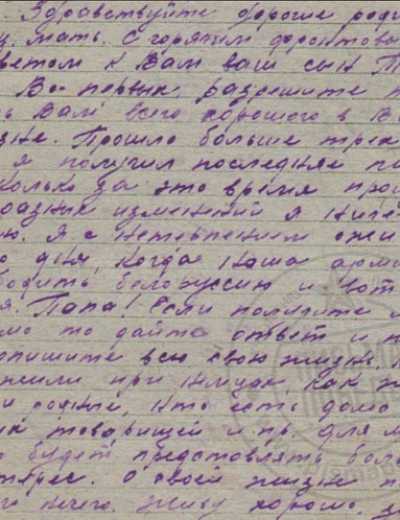 Здравствуйте дороге роди
ц, мать. С горячим фронтова
ветом к Вам ваш сын
Во-первых разрешите п
ь Вам всего хорошого в В
зне. Прошло больше трех
я получил последняе пи
колько за это время прои
разных изменений я ниче
ю. Я с нетерпением ожи
о дня, когда наша арми
бодить белоруссию и вот
я. Папа! Если получите
мо то дайте ответ и п
опишите всю свою жизнь.
жили при немцах, как ж
и родные, кто есть дома
их товарищей и пр. для м
о будет представлять боль
терес. О своей жизни п
нечего. Живу хорошо, з